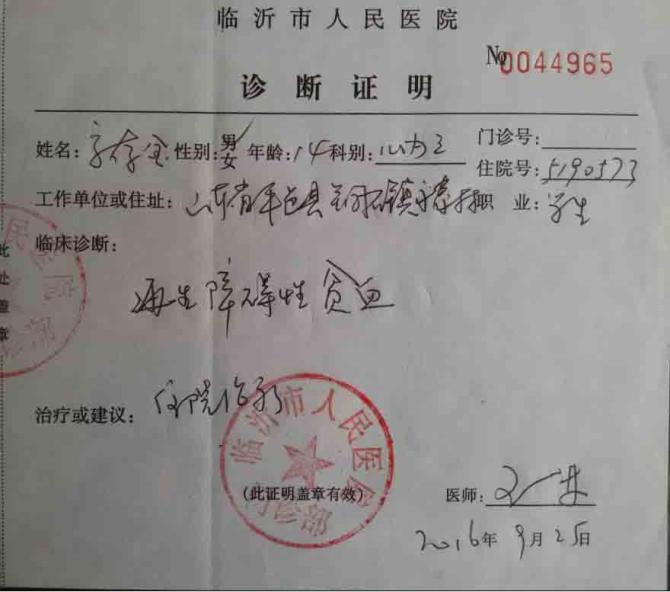 临沂市人民医院
№0044965
诊断证明
姓名: 性别:男女 年龄:14 科别: 门诊号:
住院号:5190573
工作单位或住址:山东省平邑县 镇 村 职业:学生
此处盖章
临床诊断:
再生障碍性贫血
治疗或建议:住院治疗
临沂市人民医院
(此证明盖章有效)
门诊部
医师:
2016年9月25日